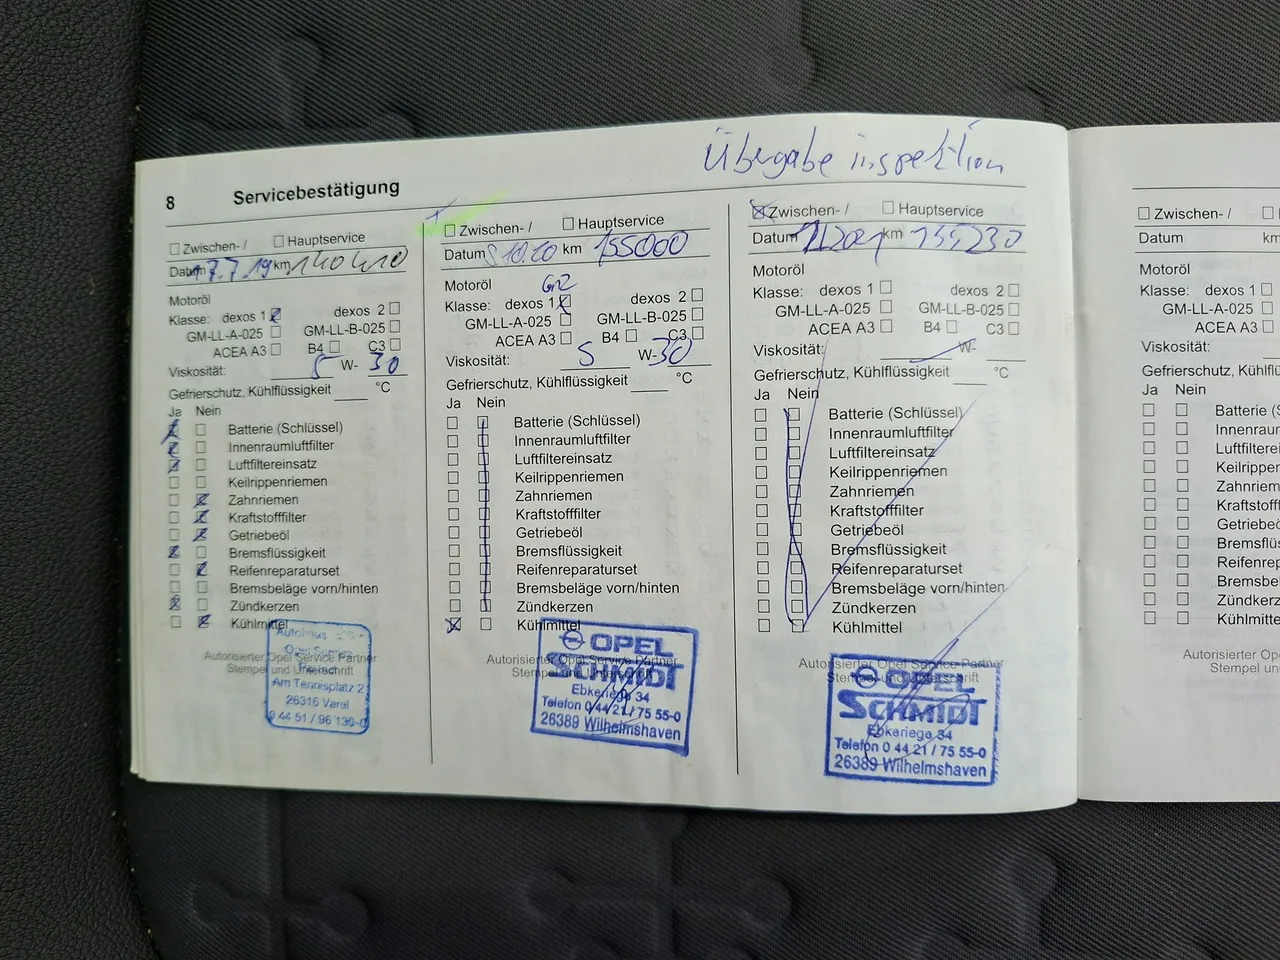 Übergabe inspektion
8 Servicebestätigung
Zwischen- / Hauptservice
Datum 17.7.19 km 140410
Motoröl
Klasse: dexos 1 dexos 2
GM-LL-A-025 GM-LL-B-025
ACEA A3 B4 C3
Viskosität: 5 W- 30
Gefrierschutz, Kühlflüssigkeit °C
Ja Nein
Batterie (Schlüssel)
Innenraumluftfilter
Luftfiltereinsatz
Keilrippenriemen
Zahnriemen
Kraftstofffilter
Getriebeöl
Bremsflüssigkeit
Reifenreparaturset
Bremsbeläge vorn/hinten
Zündkerzen
Kühlmittel
Autorisierter Opel Service Partner
Stempel und Unterschrift
Autohaus
Opel Service
Am Tennisplatz 2
26316 Varel
0 44 51 / 96 130-0
Zwischen- / Hauptservice
Datum 10.20 km 155000
Motoröl
Klasse: dexos 1 dexos 2
GM-LL-A-025 GM-LL-B-025
ACEA A3 B4 C3
Viskosität: 5 W- 30
Gefrierschutz, Kühlflüssigkeit °C
Ja Nein
Batterie (Schlüssel)
Innenraumluftfilter
Luftfiltereinsatz
Keilrippenriemen
Zahnriemen
Kraftstofffilter
Getriebeöl
Bremsflüssigkeit
Reifenreparaturset
Bremsbeläge vorn/hinten
Zündkerzen
Kühlmittel
Autorisierter Opel Service Partner
Stempel und Unterschrift
OPEL
SCHMIDT
Ebkeriege 34
Telefon 0 44 21 / 75 55-0
26389 Wilhelmshaven
Zwischen- / Hauptservice
Datum km 155230
Motoröl
Klasse: dexos 1 dexos 2
GM-LL-A-025 GM-LL-B-025
ACEA A3 B4 C3
Viskosität: W-
Gefrierschutz, Kühlflüssigkeit °C
Ja Nein
Batterie (Schlüssel)
Innenraumluftfilter
Luftfiltereinsatz
Keilrippenriemen
Zahnriemen
Kraftstofffilter
Getriebeöl
Bremsflüssigkeit
Reifenreparaturset
Bremsbeläge vorn/hinten
Zündkerzen
Kühlmittel
Autorisierter Opel Service Partner
Stempel und Unterschrift
OPEL
SCHMIDT
Ebkeriege 34
Telefon 0 44 21 / 75 55-0
26389 Wilhelmshaven
Zwischen- /
Datum km
Motoröl
Klasse: dexos 1
GM-LL-A-025
ACEA A3
Viskosität:
Gefrierschutz, Kühlfl
Ja Nein
Batterie (S
Innenraum
Luftfilterei
Keilrippen
Zahnrieme
Kraftstofff
Getriebeö
Bremsflüs
Reifenrep
Bremsbe
Zündkerz
Kühlmitte
Autorisierter Op
Stempel u